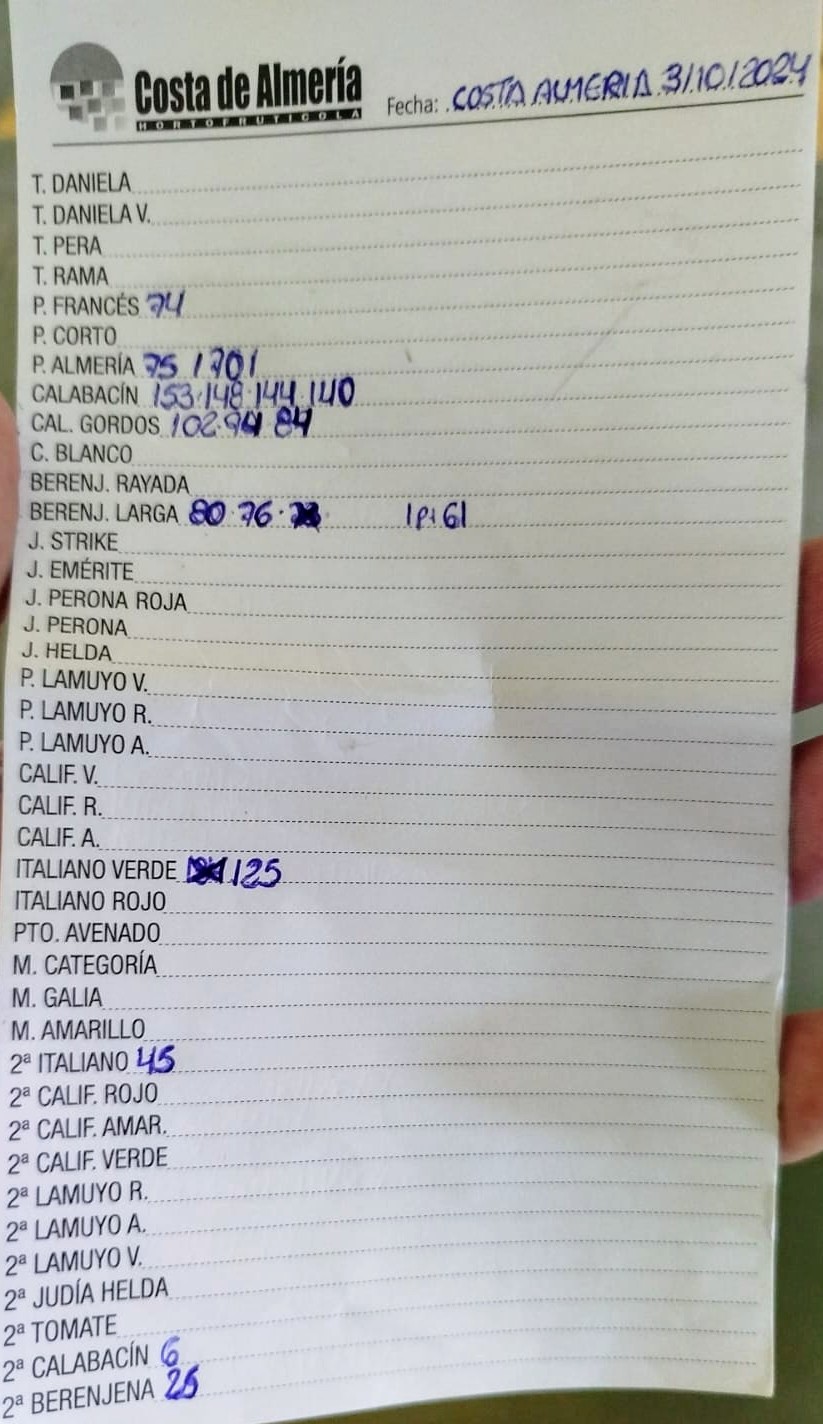 Costa de Almería
HORTOFRUTICOLA
Fecha: COSTA ALMERIA 3/10/2024
T. DANIELA
T. DANIELA V.
T. PERA
T. RAMA
P. FRANCÉS 74
P. CORTO
P. ALMERÍA 75 / 701
CALABACÍN 153·148·144·140
CAL. GORDOS 102·94 84
C. BLANCO
BERENJ. RAYADA
BERENJ. LARGA 80·76· 1P:61
J. STRIKE
J. EMÉRITE
J. PERONA ROJA
J. PERONA
J. HELDA
P. LAMUYO V.
P. LAMUYO R.
P. LAMUYO A.
CALIF. V.
CALIF. R.
CALIF. A.
ITALIANO VERDE 125
ITALIANO ROJO
PTO. AVENADO
M. CATEGORÍA
M. GALIA
M. AMARILLO
2ª ITALIANO 45
2ª CALIF. ROJO
2ª CALIF. AMAR.
2ª CALIF. VERDE
2ª LAMUYO R.
2ª LAMUYO A.
2ª LAMUYO V.
2ª JUDÍA HELDA
2ª TOMATE
2ª CALABACÍN 6
2ª BERENJENA 25